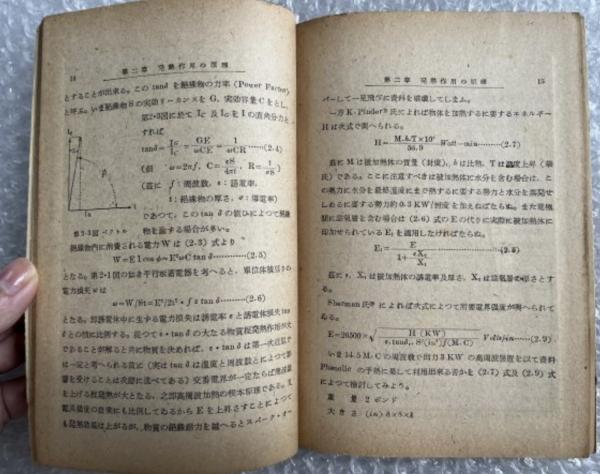 14
第二章 発熱作用の原理
とすることが出来る。この tanδ を絶縁物の力率 (Power Factor)
と呼ぶ。いま絶縁物 S の実効リーカンスを G、実効容量 C をとし、
第2・3図に於て Ic 及 IG を I の直角分力と
すれば
tanδ = IG/IC = GE/ωCE = 1/ωCR ……(2.4)
(但 ω=2πf, C=εS/4πt, R=t/σS)
(茲に f: 周波数, ε: 誘電率,
t: 絶縁物の厚さ, σ: 導電率)
であつて、この tan δ の値ひによつて絶縁
物を論ずる場合が多い。
第2・3図 ベクトル
絶縁物内に消費される電力 W は (2.3) 式より
W=E I cos φ≒E²ωC tan δ ……(2.5)
となる。第2・1図の如き平行板蓄電器を考へると、単位体積当りの
電力損失 w は
w=W/St=E²/2t²・f ε tan δ ……(2.6)
となる。即誘電体中に生ずる電力損失は誘電率 ε と誘電体損失 tan
δ との積に比例する。従つて ε・tan δ の大なる物質程発熱作用が大
であることが解ると共に物質を決めれば、ε・tan δ は第一次近似で
は一定と考へられる故に (実は tan δ は温度と周波数とによつて影
響を受けることは次節に述べてある) 交番電界が一定ならば周波数
を上げる程発熱が大となる。之即高周波加熱の根本原理である。又
電界強度の自乗にも比例してゐるから E を上昇さすことによつて
も発熱効果は上がるが、物質の絶縁耐力を越へるとスパーク・オー
第二章 発熱作用の原理
15
バーして一足飛びに資料を破壊してしまふ。
一方 K・Pinder 氏によれば物体を加熱するに要するエネルギー
H は次式で与へられる。
H = M.h.T×10³/56.9 Watt-min ……(2.7)
茲に M は被加熱体の質量 (封度)、h は比熱、T は温度上昇 (華
氏) である。ここに注意すべきは被加熱体に水分を含む場合は、こ
の熱力に水分を最終温度にまで熱するに要する勢力と水分を蒸発せ
しめるに要する勢力約 0.3 KW/封度を加えねばならぬ。また電極
間に空気層を含む場合は (2.6) 式の E の代りに実際に被加熱体に
印加せられている E₁ を適用しなければならぬ。
E₁ = E/(1+ εX₂/X₁) ……(2.8)
茲に ε, X₁ は被加熱体の誘電率及厚さ、X₂ は空気層の厚さとす
る。
Sherman 氏によれば次式によつて所要電界強度が与へられて
ゐる。
E=26500×√(H (KW)/ε.tanδ.S²(in³)f(M.C)) Volts/in ……(2.9)
いま 14.5 M.C の周波数で出力 3 KW の高周波装置を以て資料
Phenolic の予熱に処して利用出来る否かを (2.7) 式及 (2.9) 式
によつて検討してみよう。
重 量 2 ポンド
大きさ (in) 8×8×